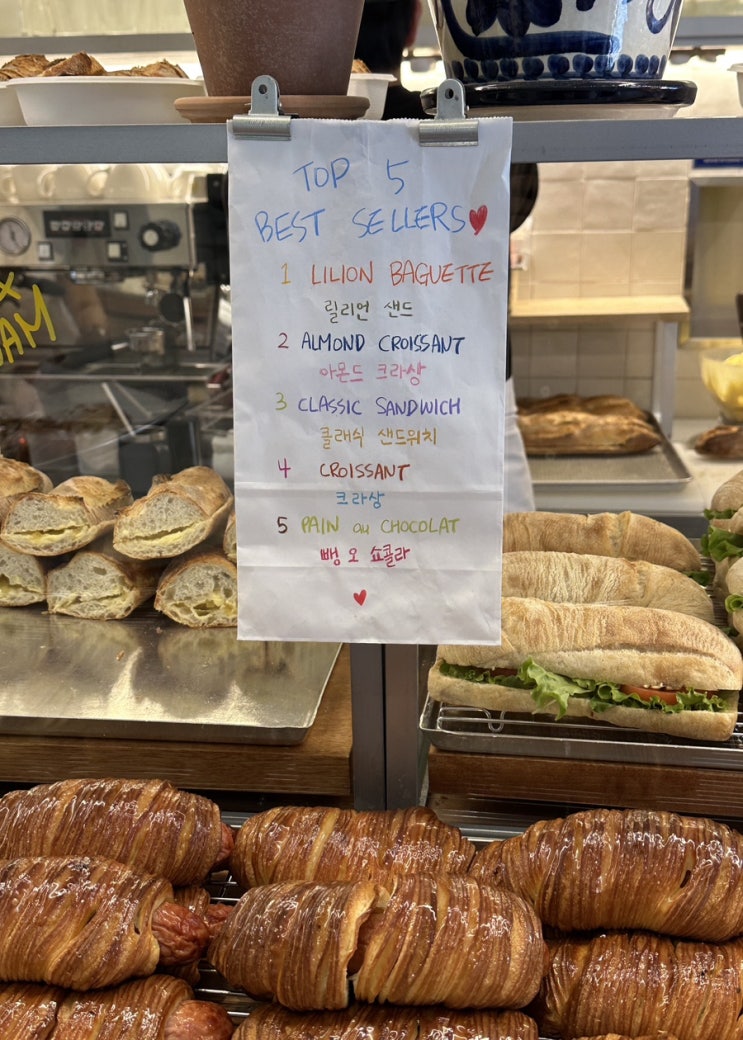 TOP 5
BEST SELLERS
1 LILION BAGUETTE
릴리언 샌드
2 ALMOND CROISSANT
아몬드 크라상
3 CLASSIC SANDWICH
클래식 샌드위치
4 CROISSANT
크라상
5 PAIN au CHOCOLAT
뺑 오 쇼콜라